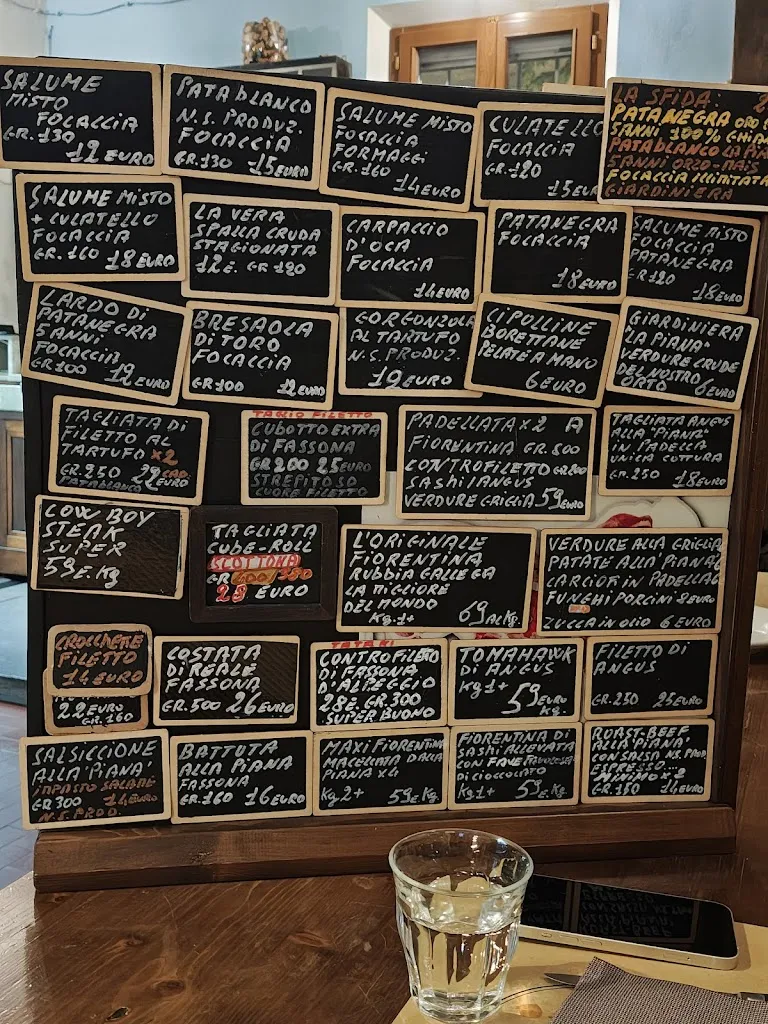 SALUME
MISTO
FOCACCIA
GR. 130
12 EURO
PATABLANCO
N.S. PRODUZ.
FOCACCIA
GR. 130 15 EURO
SALUME MISTO
FOCACCIA
FORMAGGI
GR. 160
14 EURO
CULATELLO
FOCACCIA
GR. 120
15 EUR
LA SFIDA:
PATANEGRA
5 ANNI 100%
PATABLANCO LA
5 ANNI ORZO-MAIS
FOCACCIA ILLIMITATA
GIARDINIERA
SALUME MISTO
+ CULATELLO
FOCACCIA
GR. 160 18 EURO
LA VERA
SPALLA CRUDA
STAGIONATA
12 E. GR 120
CARPACCIO
D'OCA
FOCACCIA
14 EURO
PATANEGRA
FOCACCIA
18 EURO
SALUME MISTO
FOCACCIA
PATANEGRA
GR. 120
18 EURO
LARDO DI
PATANEGRA
5 ANNI
FOCACCIA
GR 100 12 EURO
BRESAOLA
DI TORO
FOCACCIA
GR 100 12 EURO
GORGONZOLA
AL TARTUFO
N.S. PRODUZ.
12 EURO
CIPOLLINE
BORETTANE
PELATE A MANO
6 EURO
GIARDINIERA
LA PIANA
VERDURE CRUDE
DEL NOSTRO
ORTO 6 EURO
TAGLIATA DI
FILETTO AL
TARTUFO X2
GR. 250 28 CAD.
PATABLANCO
TAGLIO FILETTO
CUBOTTO EXTRA
DI FASSONA
GR 200 25 EURO
STREPITOSO
CUORE FILETTO
PADELLATA X2 A
FIORENTINA GR. 800
CONTROFILETTO GR 800
SASHI/ANGUS
VERDURE GRIGLIA 59 EURO
TAGLIATA ANGUS
ALLA "PIANA"
IN PADELLA
UNICA COTTURA
GR. 250 18 EURO
COW BOY
STEAK
SUPER
59 E. Kg
TAGLIATA
CUBE-ROLL
SCOTTONA
GR 350
25 EURO
L'ORIGINALE
FIORENTINA
RUBBIA GALLEGA
LA MIGLIORE
DEL MONDO
Kg. 1+ 69 AL Kg.
VERDURE ALLA GRIGLIA
PATATE ALLA "PIANA"
CARCIOF IN PADELLA6
FUNGHI PORCINI 8 EURO
ZUCCA IN OLIO 6 EURO
CROCCHETTE
FILETTO
14 EURO
22 EURO
GR. 160
COSTATA
DI REALE
FASSONA
GR. 500 26 EURO
TATAKI
CONTROFILETTO
DI FASSONA
D'ALPEGGIO
28 E. GR. 300
SUPER BUONO
TOMAHAWK
DI ANGUS
Kg 1+ 59 EURO
Kg.
FILETTO DI
ANGUS
GR. 250 25 EURO
SALSICCIONE
ALLA "PIANA"
IMPASTO SALAME
GR 300 14 EURO
N.S. PROD.
BATTUTA
ALLA PIANA
FASSONA
GR. 160 16 EURO
MAXI FIORENTINA
MACELLATA DALLA
PIANA X4
Kg 2+ 59 E. Kg.
FIORENTINA DI
SASHI ALLEVATA
CON FAVE
DI CIOCCOLATO
Kg. 1+ 59 E. Kg.
ROAST-BEEF
ALLA "PIANA"
CON SALSA NS. PROD.
ESPRESSO
MINIMO X2
GR. 150 14 EURO